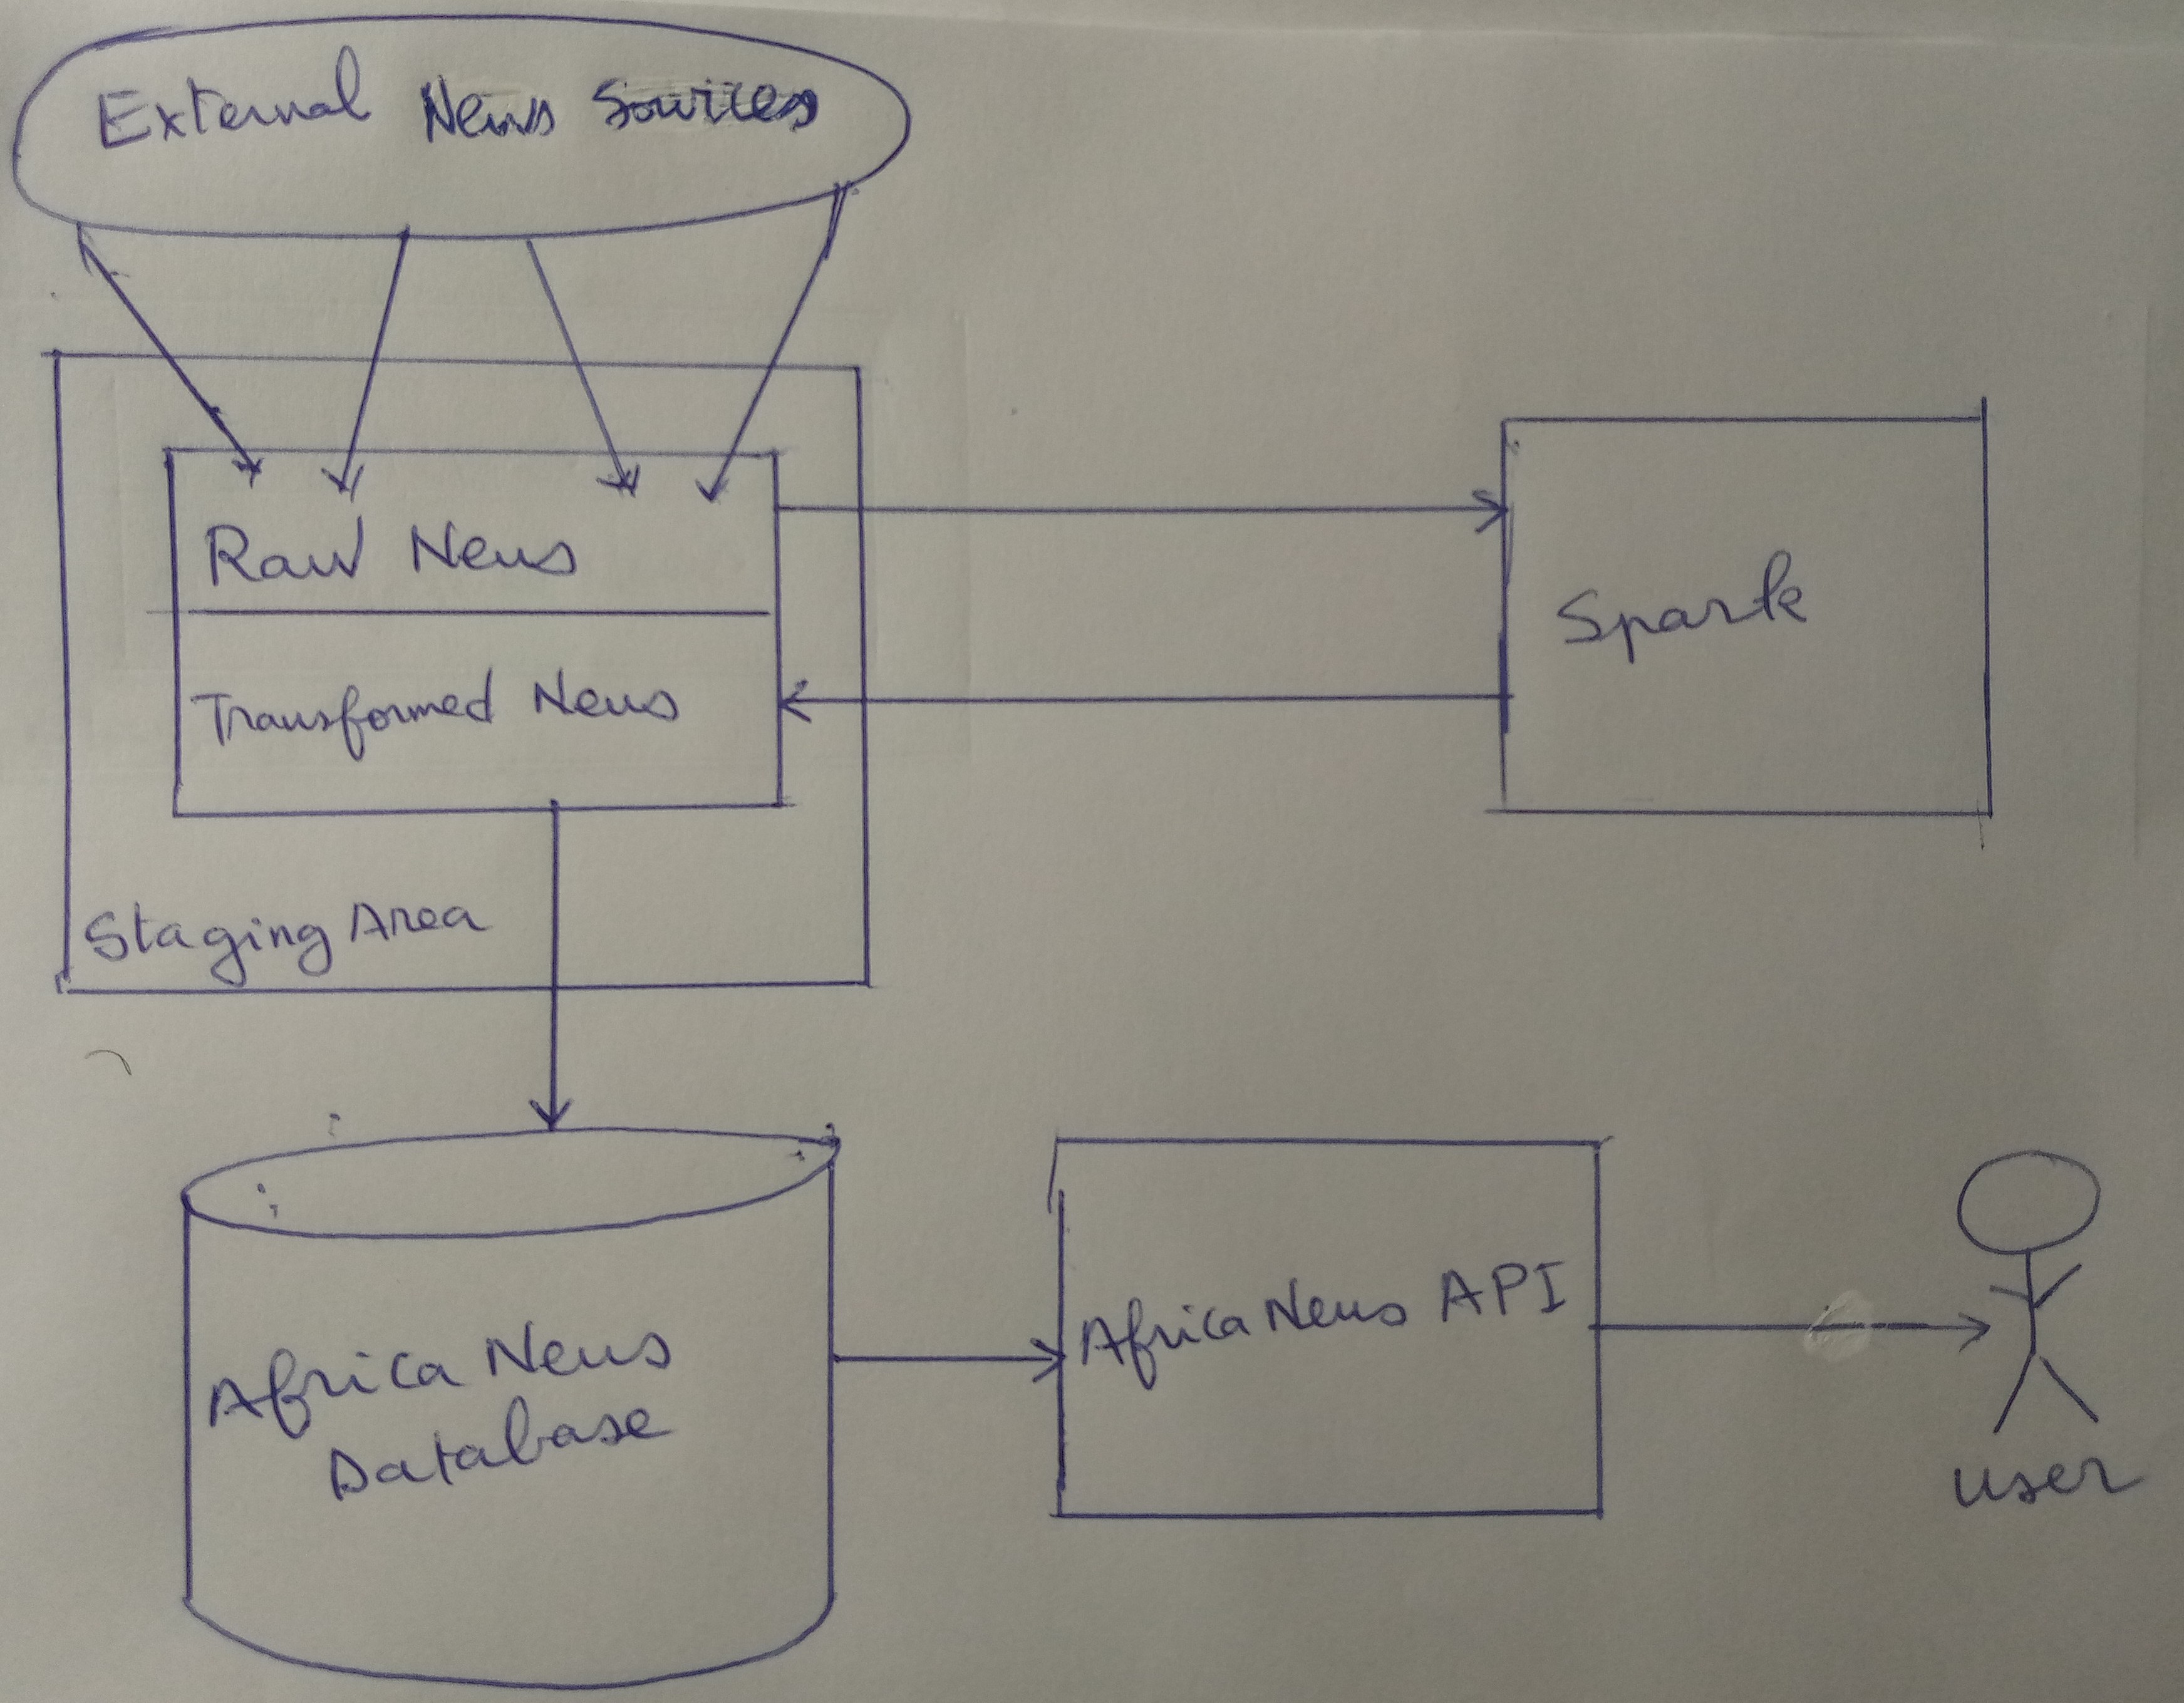 External News Sources
Raw News
Transformed News
Spark
Staging Area
Africa News
Database
Africa News API
user